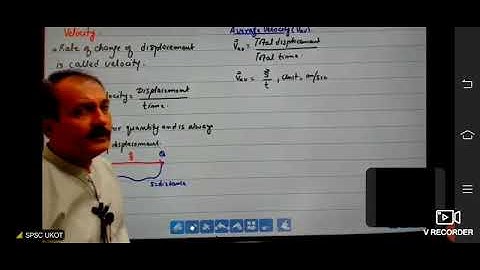 Velocity.
Rate of change of displacement
is called velocity.
ocity = Displacement
time
quantity and is always
displacement.
S
Q
S=distance
Average Velocity (Vav)
Vav = Total displacement
Total time
Vav = S
t , Unit = m/sec
SPSC UKOT
V RECORDER